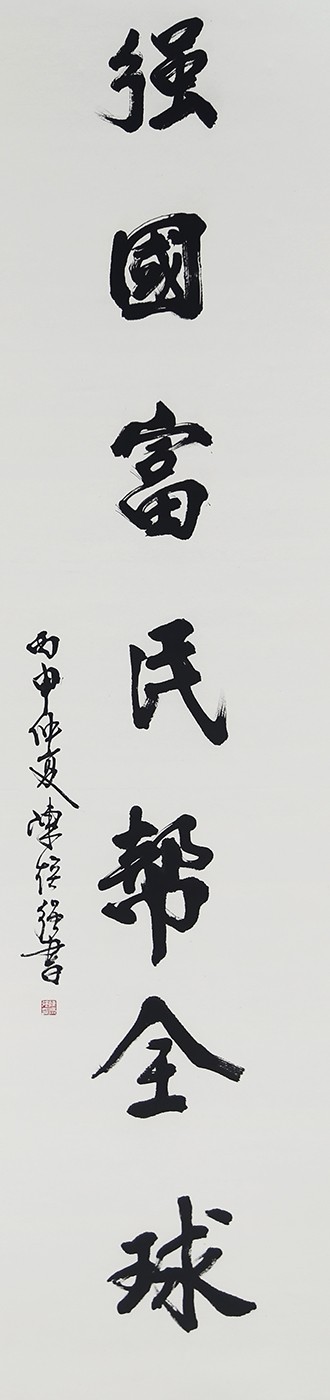 强國富民帮全球
丙申仲夏陳培强書